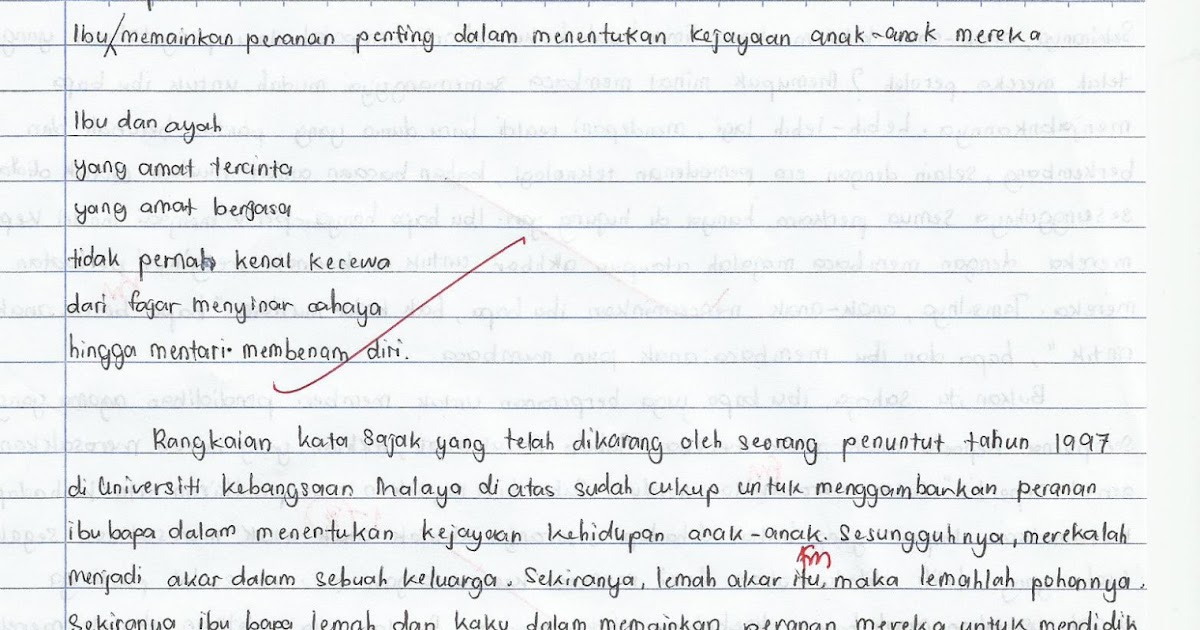 Ibu memainkan peranan penting dalam menentukan kejayaan anak-anak mereka
Ibu dan ayah
yang amat tercinta
yang amat berjasa
tidak pernah kenal kecewa
dari fajar menyinar cahaya
hingga mentari membenam diri.
Rangkaian kata sajak yang telah dikarang oleh seorang penuntut tahun 1997
di Universiti Kebangsaan Malaya di atas sudah cukup untuk menggambarkan peranan
ibu bapa dalam menentukan kejayaan kehidupan anak-anak. Sesungguhnya, merekalah
menjadi akar dalam sebuah keluarga. Sekiranya, lemah akar itu, maka lemahlah pohonnya.
Sekiranya ibu bapa lemah dan kaku dalam memainkan peranan mereka untuk mendidik